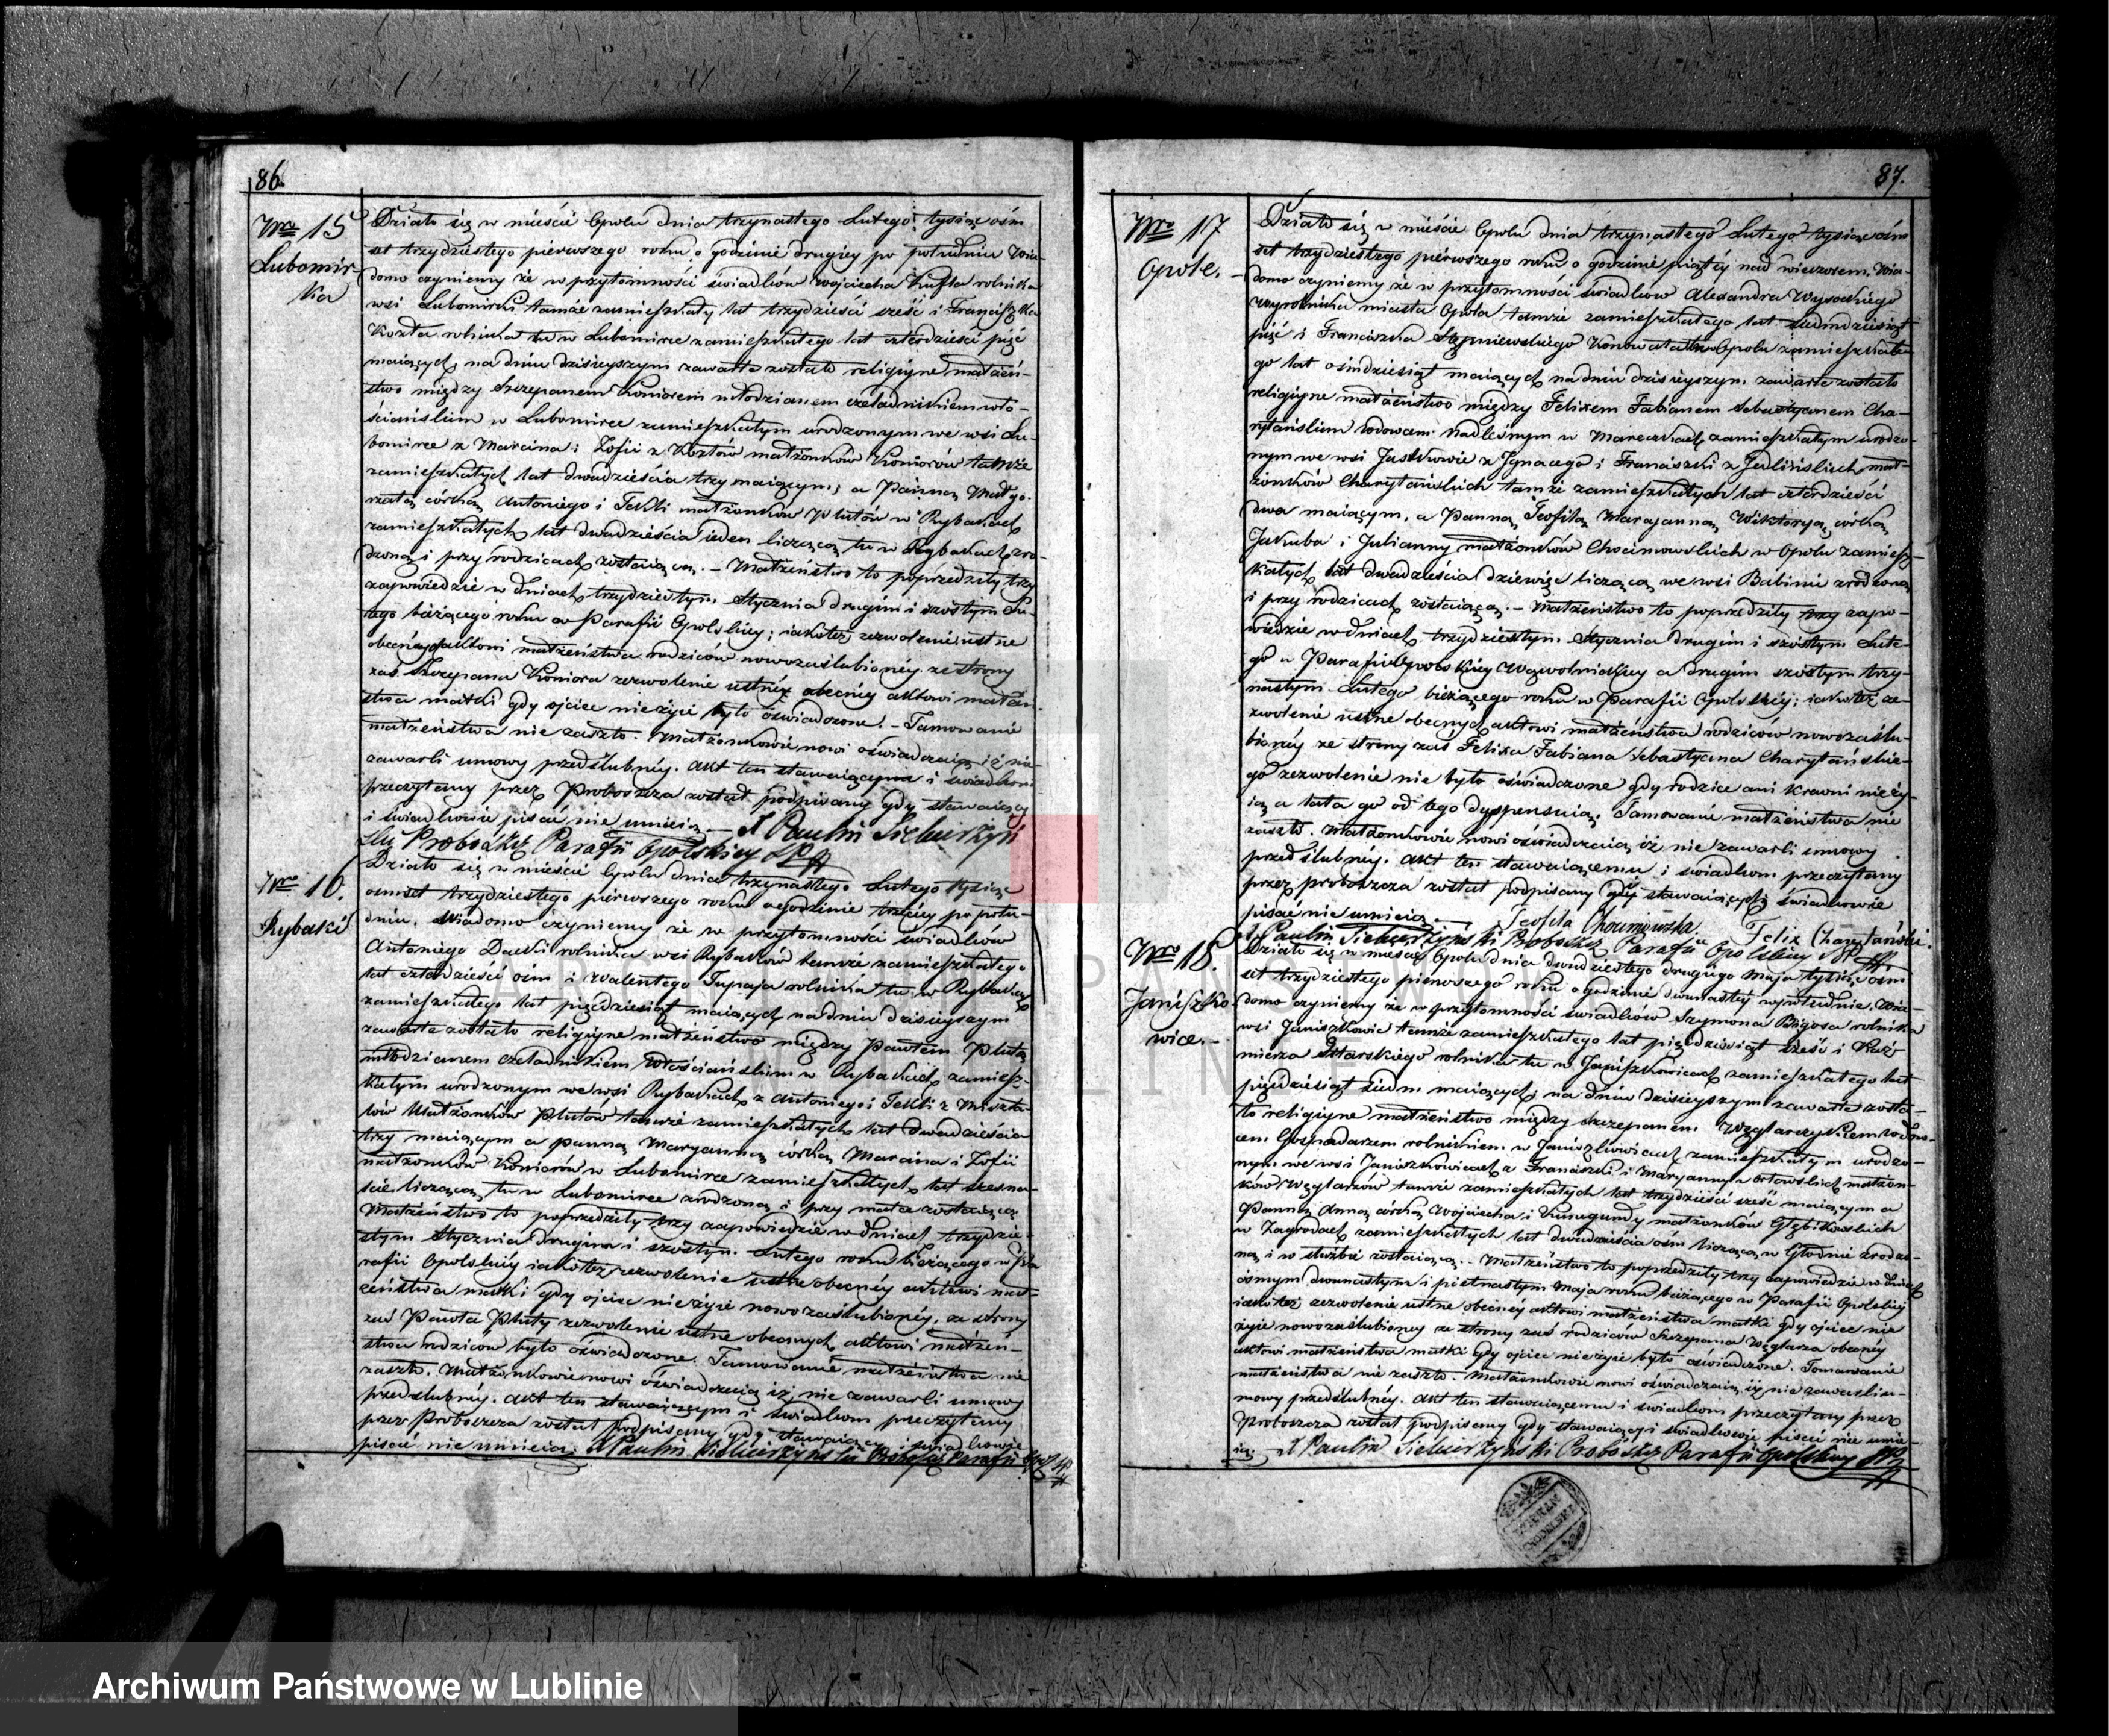 86.
Nro 15
Lubomir
ka
Działo się w mieście Opolu dnia trzynastego Lutego tysiąc ośm
set trzydziestego pierwszego roku o godzinie drugiey po południu Wia-
domo czynimy że w przytomności świadków Woyciecha Kufla rolnika
wsi Lubomirki tamże zamieszkały lat trzydzieści sześć i Franciszka
Kozła rolnika tu w Lubomirce zamieszkałego lat czterdzieści pięć
maiących na dniu dzisieyszym zawarte zostało religiyne małżeń-
stwo między Szczepanem Komorem młodzianem czeladnikiem wło-
ściańskim w Lubomirce zamieszkałym urodzonym we wsi Lu-
bomirce z Marcina i Zofii z Kozłów małżonków Komorów tamże
zamieszkałych lat dwadzieścia trzy maiącym; a Panną Małgo-
rzatą córką Antoniego i Tekli małżonków Plutów w Rybakach
zamieszkałych lat dwadzieścia ieden liczącą tu w Rybakach zro-
dzoną i przy rodzicach zostaiącą. – Małżeństwo to poprzedziły trzy
zapowiedzie w dniach trzydziestym Stycznia drugim i szóstym Lu-
tego bieżącego roku w Parafii Opolskiey; iakoteż zezwolenie ustne
obecnych aktowi małżeństwa rodziców nowozaślubioney ze strony
zaś Szczepana Komora zezwolenie ustne obecney aktowi małżeń-
stwa matki gdy oyciec nie żyie było oświadczone. – Tamowanie
małżeństwa nie zaszło. Małżonkowie nowi oświadczaią iż nie
zawarli umowy przedślubney. Akt ten stawaiącym i świadkom
przeczytany przez Proboszcza został podpisany gdy stawaiący
i świadkowie pisać nie umieią. – X Paulin Siekierzyń
ski Proboszcz Parafii Opolskiey
Nro 16.
Rybaki
Działo się w mieście Opolu dnia trzynastego Lutego tysiąc
ośmset trzydziestego pierwszego roku o godzinie trzeciey po połu-
dniu. Wiadomo czynimy że w przytomności świadków
Antoniego Dacki rolnika wsi Rybaków tamże zamieszkałego
lat czterdzieści ośm i Walentego Tupaja rolnika tu w Rybakach
zamieszkałego lat pięćdziesiąt maiących na dniu dzisieyszym
zawarte zostało religiyne małżeństwo między Pawłem Plutą
młodzianem czeladnikiem włościańskim w Rybakach zamiesz-
kałym urodzonym we wsi Rybakach z Antoniego i Tekli z
Małżonków Plutów tamże zamieszkałych lat dwadzieścia
trzy maiącym a panną Maryanną córką Marcina i Zofii
małżonków Komorów w Lubomirce zamieszkałych lat szesna-
ście liczącą tu w Lubomirce zrodzoną i przy matce zostaiącą.
Małżeństwo to poprzedziły trzy zapowiedzie w dniach trzydzie-
stym Stycznia drugim i szóstym Lutego roku bieżącego w Pa
rafii Opolskiey iakoteż zezwolenie ustne obecney aktowi mał-
żeństwa matki gdy oyciec nie żyie nowozaślubioney, ze strony
zaś Pawła Pluty zezwolenie ustne obecnych aktowi małżeń-
stwa rodziców było oświadczone. Tamowanie małżeństwa nie
zaszło. Małżonkowie nowi oświadczaią iż nie zawarli umowy
przedślubney. Akt ten stawaiącym i świadkom przeczytany
przez Proboszcza został podpisany gdy stawaiący i świadkowie
pisać nie umieią. X Paulin Siekierzyński Proboszcz Parafii
87.
Nro 17
Opole. –
Działo się w mieście Opolu dnia trzynastego Lutego tysiąc ośm
set trzydziestego pierwszego roku o godzinie piątéy nad wieczorem. Wia-
domo czynimy że w przytomności świadków Alexandra Wysockiego
Wyrobnika miasta Opola tamże zamieszkałego lat siedmdziesiąt
pięć i Franciszka Stępniewskiego Konowała w Opolu zamieszkałe
go lat ośmdziesiąt maiących na dniu dzisieyszym zawarte zostało
religiyne małżeństwo między Felixem Fabianem Sebastyanem Cha-
rytańskim wdowcem Nadleśnym w zamieszkałym urodzo-
nym we wsi Jastkowie z Ignacego i Franciszki z Jedlińskich mał-
żonków Charytańskich tamże zamieszkałych lat czterdzieści
dwa maiącym, a Panną Teofilą Maryanną Wiktoryą córką
Jakuba i Julianny małżonków Chocimowskich w Opolu zamiesz-
kałych lat dwadzieścia dziewięć liczącą we wsi Babinie zrodzoną
i przy rodzicach zostaiącą. – Małżeństwo to poprzedziły trzy zapo-
wiedzie w dniach trzydziestym Stycznia drugim i szóstym Lute-
go w Parafii Wąwolnickiey a drugim szóstym trzy-
nastym Lutego bieżącego roku w Parafii Opolskiey; iakoteż ze-
zwolenie ustne obecnych aktowi małżeństwa rodziców nowozaślu-
bioney ze strony zaś Felixa Fabiana Sebastyana Charytańskie-
go zezwolenie nie było oświadczone gdy rodzice ani krewni nie ży-
ią a lata go od tego dyspensuią. Tamowanie małżeństwa nie
zaszło. Małżonkowie nowi oświadczaią iż nie zawarli umowy
przedślubney. Akt ten stawaiącemu i świadkom przeczytany
przez proboszcza został podpisany gdy stawaiących świadkowie
pisać nie umieią. – Teofila Chocimowska. Felix Charytański.
X Paulin Siekierzyński Proboszcz Parafii Opolskiey
Nro 18.
Janiszko
wice. –
Działo się w mieście Opolu dnia dwudziestego drugiego Maja tysiąc ośm
set trzydziestego pierwszego roku o godzinie dwunastéy w południe. Wia-
domo czynimy że w przytomności świadków Szymona Bigosa rolnika
wsi Janiszkowic tamże zamieszkałego lat pięćdziesiąt sześć i Kazi-
mierza rolnika tu w Janiszkowicach zamieszkałego lat
pięćdziesiąt siedm maiących na dniu dzisieyszym zawarte zosta-
ło religiyne małżeństwo między Szczepanem Węglarczykiem wdow-
cem Gospodarzem rolnikiem w Janiszkowicach zamieszkałym urodzo-
nym we wsi Janiszkowicach z Franciszki i Maryanny z Orłowskich małżon-
ków Węglarzów tamże zamieszkałych lat trzydzieści sześć maiącym a
Panną Anną córką Woyciecha i Kunegundy małżonków Głębikowskich
w Zagrodach zamieszkałych lat dwadzieścia ośm liczącą w Głodnie zrodzo-
ną i w służbie zostaiącą. – Małżeństwo to poprzedziły trzy zapowiedzie w dniach
ósmym dwunastym i piętnastym Maja roku bieżącego w Parafii Opolskiey
iakoteż zezwolenie ustne obecney aktowi małżeństwa matki gdy oyciec nie
żyie nowozaślubioney ze strony zaś rodziców Szczepana Węglarza obecney
aktowi małżeństwa matki gdy oyciec nie żyie było oświadczone. Tamowanie
małżeństwa nie zaszło. Małżonkowie nowi oświadczaią iż nie zawarli u-
mowy przedślubney. Akt ten stawaiącemu i świadkom przeczytany przez
Proboszcza został podpisany gdy stawaiący i świadkowie pisać nie umie-
ią. – X Paulin Siekierzyński Proboszcz Parafii Opolskiey
Archiwum Państwowe w Lublinie